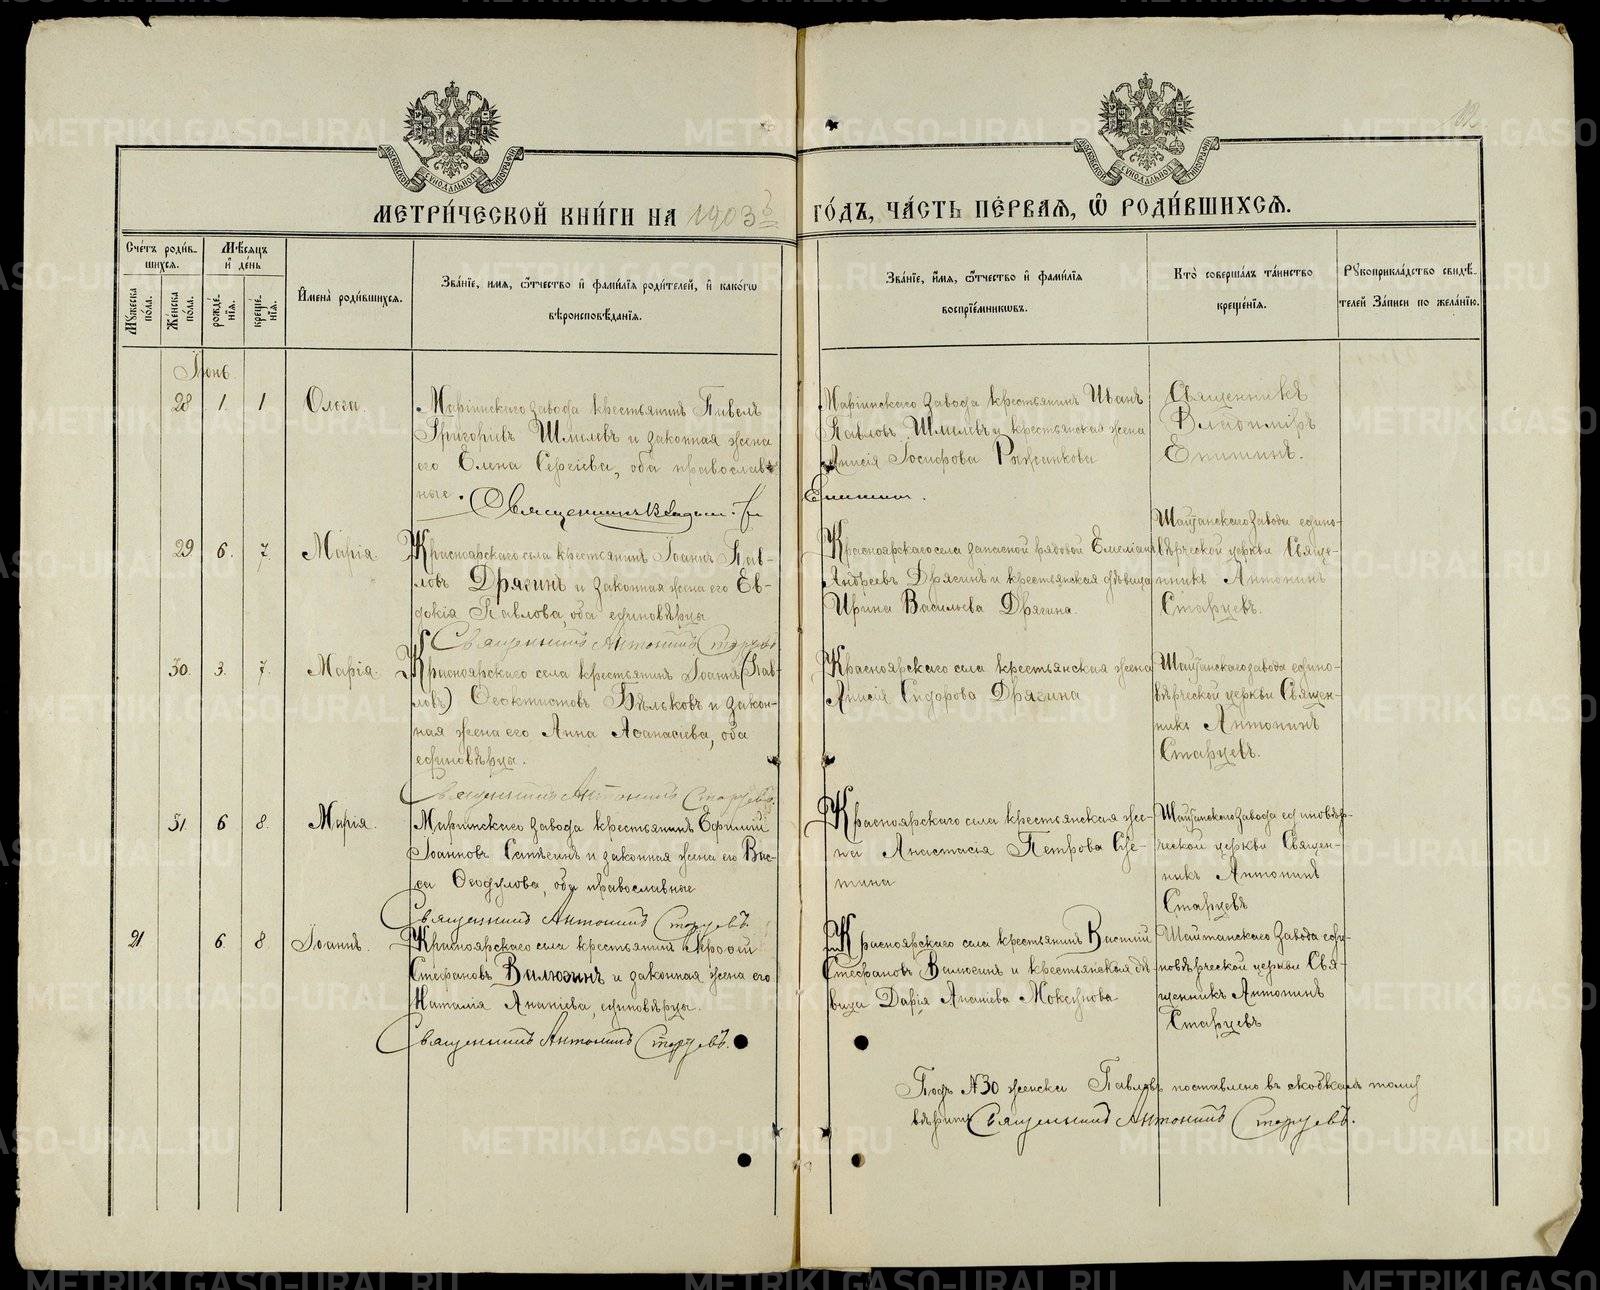 МЕТРИ́ЧЕСКОЙ КНИ́ГИ НА 1903й
ГО́ДЪ, ЧА́СТЬ ПЕ́РВАѦ, Ѡ҆ РОДИ́ВШИХСѦ.
Сче́тъ роди́в-
шихсѧ.
Мꙋ́жеска по́ла.
Же́нска по́ла.
Мѣ́сѧцъ
и҆ де́нь
рожде́-
нїѧ.
креще́-
нїѧ.
И҆мена̀ роди́вшихсѧ.
Зва́нїе, и҆́мѧ, ѻ҆́тчество и҆ фами́лїѧ роди́телей, и҆ како́гѡ
вѣроисповѣ́данїѧ.
Зва́нїе, и҆́мѧ, ѻ҆́тчество и҆ фами́лїѧ
воспрїе́мникѡвъ.
Кто̀ соверша́лъ та́инство
креще́нїѧ.
Рꙋкоприкла́дство свидѣ́-
телей За́писи по жела́нїю.
Іюнь
28 1. 1 Ольга.
Маріинскаго завода крестьянинъ Павелъ
Григоріевъ Шмелевъ и законная жена
его Елена Сергіева, оба православ-
ные.
Маріинскаго завода крестьянинъ Иванъ
Павловъ Шмелевъ и крестьянская жена
Анисія Іосифова Рыжанкова
Священникъ
Владимиръ
Епишинъ.
Священникъ Владим. Епишин.
29 6. 7. Марія.
Красноярскаго села крестьянинъ Іоаннъ Пав-
ловъ Дрягинъ и законная жена его Ев-
докія Павлова, оба единовѣрцы
Священникъ Антонинъ Старцевъ
Красноярскаго села запасной рядовой Емеліанъ
Андреевъ Дрягинъ и крестьянская дѣвица
Ирина Васильева Дрягина.
Шайтанскаго завода едино-
вѣрческой церкви Свяще-
нникъ Антонинъ
Старцевъ.
30. 3. 7. Марія.
Красноярскаго села крестьянинъ Іоаннъ (Пав-
ловъ) Ѳеоктистовъ Бѣльковъ и закон-
ная жена его Анна Аѳанасіева, оба
единовѣрцы.
Священникъ Антонинъ Старцевъ.
Красноярскаго села крестьянская жена
Анисія Сидорова Дрягина
Шайтанскаго завода едино-
вѣрческой церкви Священ-
никъ Антонинъ
Старцевъ.
31 6 8. Марія.
Маріинскаго завода крестьянинъ Ефимій
Іоанновъ и законная жена его Вас-
са Ѳеодулова, оба православные
Священникъ Антонинъ Старцевъ.
Красноярскаго села крестьянская же-
на Анастасья Петрова
Шайтанскаго завода единовѣр-
ческой церкви Священ-
никъ Антонинъ
Старцевъ
21 6. 8. Іоаннъ.
Красноярскаго села крестьянинъ Ерофей
Стефановъ Вилюгинъ и законная жена его
Наталія Ананіева, единовѣрцы.
Священникъ Антонинъ Старцевъ.
Красноярскаго села крестьянинъ Василій
Стефановъ Вилюгинъ и крестьянская дѣ-
вица Дарія Ананіева Мокѣрова
Шайтанскаго завода еди-
новѣрческой церкви Свя-
щенникъ Антонинъ
Старцевъ
Подъ №30 женска Павловъ поставлено въ скобкахъ тому
вѣрить Священникъ Антонинъ Старцевъ.